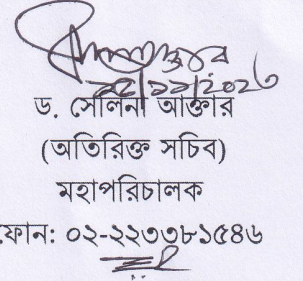 ড. সেলিনা আক্তার
(অতিরিক্ত সচিব)
মহাপরিচালক
ফোন: ০২-২২৩৩৮১৫৪৬